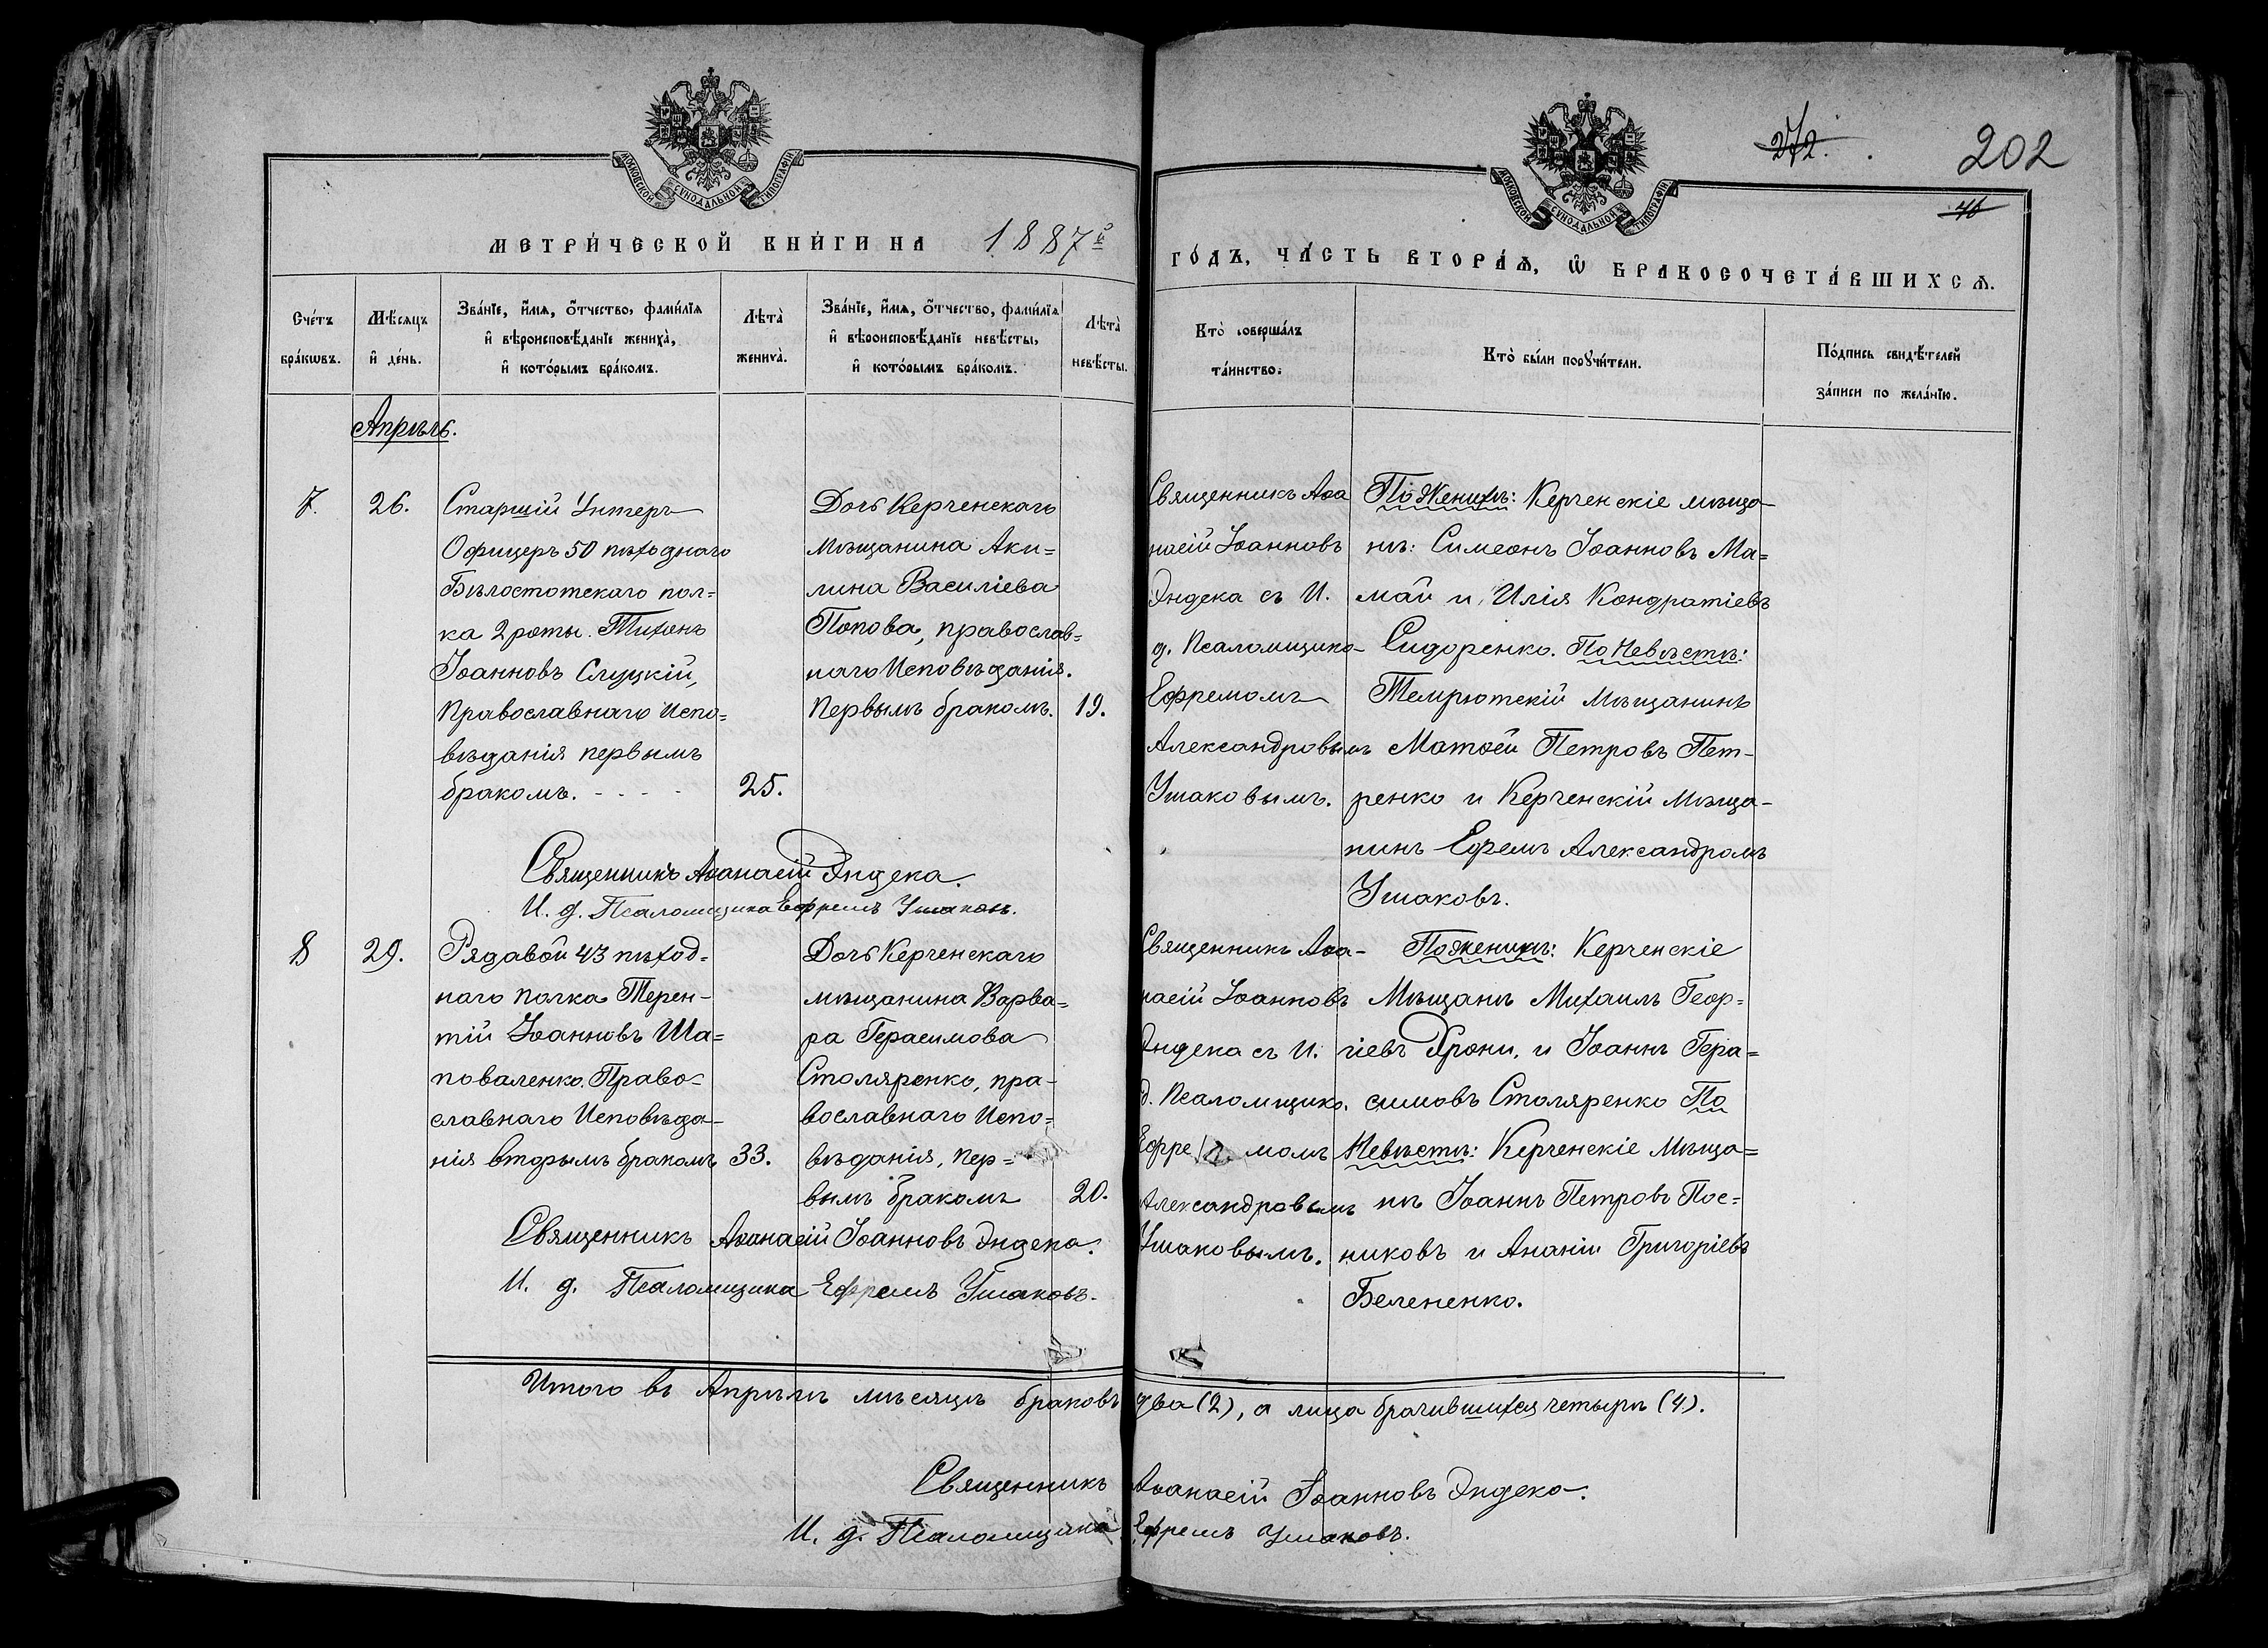 МОСКОВСКОЙ СѴНОДАЛЬНОЙ ТИПОГРАФІИ
МОСКОВСКОЙ СѴНОДАЛЬНОЙ ТИПОГРАФІИ
272.
202
46
МЕТРИ́ЧЕСКОЙ КНИ́ГИ НА 1887й
ГО́ДЪ, ЧА́СТЬ ВТОРА́Ѧ, Ѽ БРАКОСОЧЕТА́ВШИХСѦ.
Сче́тъ
бра́кѡвъ.
Мѣ́сяцъ
и҆ де́нь.
Зва́нїе, и҆́мѧ, ѻ҆́тчество, фами́лїѧ
и҆ вѣроисповѣ́данїе жениха̀,
и҆ кото́рымъ бра́комъ.
Лѣта̀
жениха̀.
Зва́нїе, и҆́мѧ, ѻ҆́тчество, фами́лїѧ
и҆ вѣроисповѣ́данїе невѣ́сты,
и҆ кото́рымъ бра́комъ.
Лѣта̀
невѣ́сты.
Кто̀ соверша́лъ
та́инство.
Кто̀ бы́ли порꙋчи́тели.
По́дпись свидѣ́телей
за́писи по жела́нїю.
Апрѣль.
7.
26.
Старшій Унтеръ
Офицеръ 50 пѣходнаго
Бѣлостотскаго пол=
ка 2 роты. Тихонъ
Іоанновъ Слуцкій,
Православнаго Испо=
вѣданія первымъ
бракомъ. - - - -
25.
Дочь Керченскаго
Мѣщанина Аки=
лина Василіева
Попова, православ=
наго Исповѣданія.
Первымъ бракомъ.
19.
Священникъ Аѳа
насій Іоанновъ
Эндека съ И.
д. Псаломщика
Ефремомъ
Александровымъ
Ушаковымъ.
По Женихѣ: Керченскіе мѣща-
нѣ: Симеонъ Іоанновъ Ма=
май и Илія Кондратіевъ
Сидоренко. По Невѣстѣ:
Темрютскій Мѣщанинъ
Матѳей Петровъ Пет-
ренко и Керченскій Мѣща-
нинъ Ефремъ Александромъ
Ушаковъ.
Священникъ Аѳанасій Эндека.
И. д. Псаломщика Ефремъ Ушаковъ.
8
29.
Рядавой 43 пѣход=
наго полка Терен-
тій Іоанновъ Ша=
поваленко. Право=
славнаго Исповѣда-
нія вторымъ бракомъ
33.
Дочь Керченскаго
мѣщанина Варва=
ра Герасимова
Столяренко, пра-
вославнаго Испо=
вѣданія, пер=
вымъ бракомъ
20.
Священникъ Аѳа-
насій Іоанновъ
Эндека съ И.
д. Псаломщико.
Ефре момъ
Александровымъ
Ушаковымъ.
По женихѣ: Керченскіе
Мѣщанѣ Михаилъ Геор=
гіевъ Хрони, и Іоаннъ Гера=
симовъ Столяренко По
Невѣстѣ: Керченскіе Мѣща=
нѣ Іоаннъ Петровъ Пос=
никовъ и Ананій Григоріевъ
Белененко.
Священникъ Аѳанасій Іоанновъ Эндека.
И. д. Псаломщика Ефремъ Ушаковъ.
Итого въ Апрѣлѣ мѣсяцѣ браковъ два (2), а лица брачившихся четырѣ (4).
Священникъ Аѳанасій Іоанновъ Эндека.
И. д. Псаломщика Ефремъ Ушаковъ.